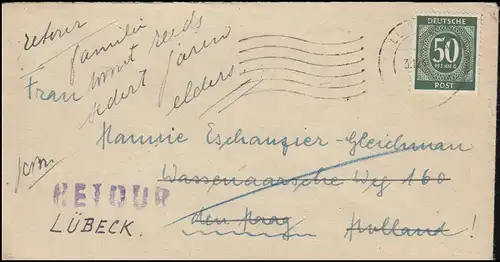 retour
familie
woont reeds
sedert jaren
elders
Frau
Hannie Eschauzier-Gleichman
Wassenaarsche Weg 160
den Haag Holland!
RETOUR
LÜBECK.
DEUTSCHE
50
PFENNIG
POST